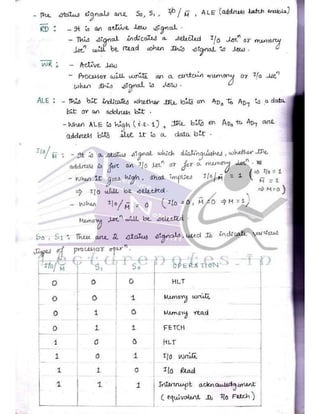 - The status signals are S0, S1, I/O/M̅, ALE (address latch enable)
R̅D̅ : - It is an active low signal.
- This signal indicates a selected I/O locⁿ or memory
locⁿ will be read when this signal is low.
W̅R̅ : - Active low
- Processor will write on a certain memory or I/o locⁿ
when this signal is low.
ALE : - This bit indicates whether the bits on AD0 To AD7 is a data
bit or an address bit.
- When ALE is high (i.e. 1), the bits on AD0 To AD7 are
address bits else it is a data bit.
I/o/M̅ : - It is a status signal which distinguishes, whether the
address is for an I/o locⁿ or for a memory locⁿ.
- When it goes high, that implies I/o/M̅ = 1 (⇒ I/o = 1
M̅ = 1
⇒ I/O will be selected. ⇒ M = 0)
- When I/o/M̅ = 0 (I/o = 0, M̅ = 0 ⇒ M = 1)
Memory locⁿ will be selected.
S0, S1 : These are 2 status signals, used to indicate various
types of processor operⁿ.
Lecturenotes.in
I/O/M̅ S1 S0 OPERATION
0 0 0 HLT
0 0 1 Memory write
0 1 0 Memory read
0 1 1 FETCH
1 0 0 HLT
1 0 1 I/o write
1 1 0 I/o Read
1 1 1 Interrupt acknowledgement
(equivalent to I/o Fetch)